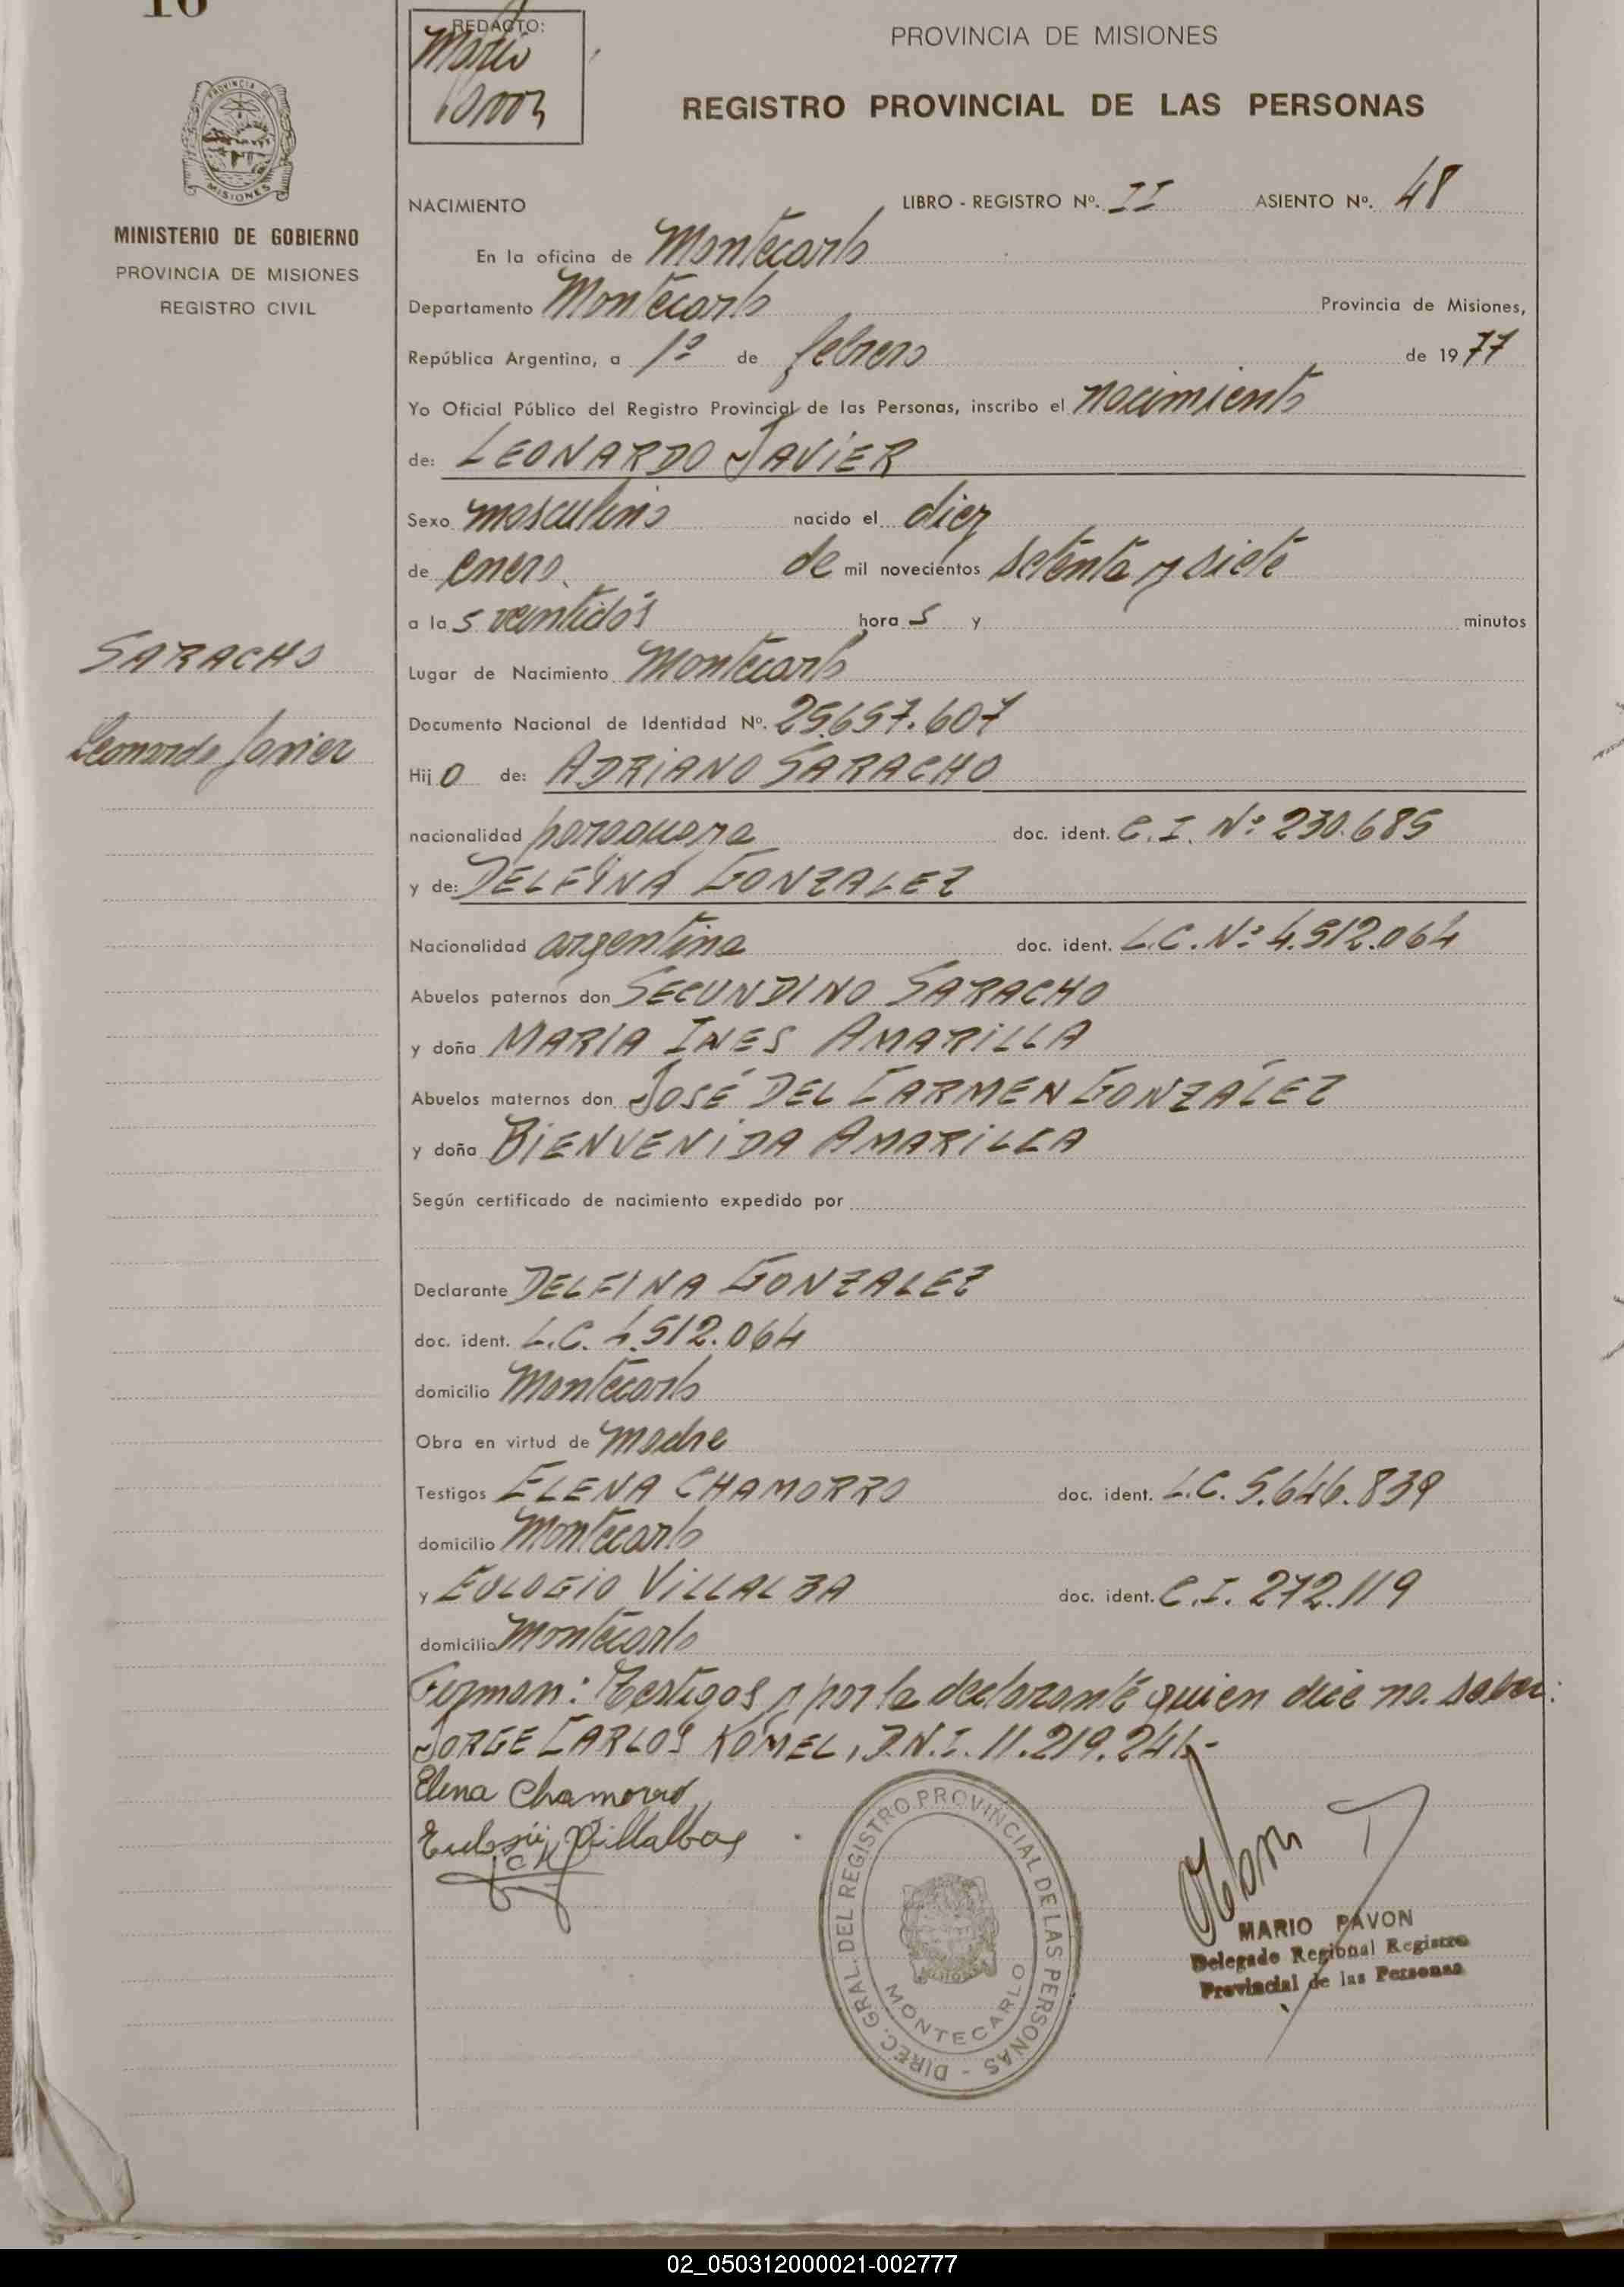 16
REDACTO:
Mario
Pavon
PROVINCIA DE MISIONES
REGISTRO PROVINCIAL DE LAS PERSONAS
PROVINCIA DE
MISIONES
MINISTERIO DE GOBIERNO
PROVINCIA DE MISIONES
REGISTRO CIVIL
SARACHO
Leonardo Javier
NACIMIENTO LIBRO - REGISTRO Nº. II ASIENTO Nº. 48
En la oficina de Montecarlo
Departamento Montecarlo Provincia de Misiones,
República Argentina, a 1º de febrero de 1977
Yo Oficial Público del Registro Provincial de las Personas, inscribo el nacimiento
de: LEONARDO JAVIER
Sexo masculino nacido el diez
de enero. de mil novecientos setenta y siete
a las veintidós horas y minutos
Lugar de Nacimiento Montecarlo
Documento Nacional de Identidad Nº. 25.657.607
Hijo de: ADRIANO SARACHO
nacionalidad paraguaya doc. ident. C.I. Nº 230.685
y de: DELFINA GONZALEZ
Nacionalidad argentina doc. ident. L.C. Nº 4.512.064
Abuelos paternos don SECUNDINO SARACHO
y doña MARIA INES AMARILLA
Abuelos maternos don JOSÉ DEL CARMEN GONZÁLEZ
y doña BIENVENIDA AMARILLA
Según certificado de nacimiento expedido por
Declarante DELFINA GONZALEZ
doc. ident. L.C. 4.512.064
domicilio Montecarlo
Obra en virtud de madre
Testigos ELENA CHAMORRO doc. ident. L.C. 5.646.839
domicilio Montecarlo
y EULOGIO VILLALBA doc. ident. C.I. 272.119
domicilio Montecarlo
Firman: Testigos y por la declarante quien dice no saber:
JORGE CARLOS KOMEL, D.N.I. 11.219.241.-
Elena Chamorro
Eulogio Villalba
DIREC. GRAL. DEL REGISTRO PROVINCIAL DE LAS PERSONAS -
MONTECARLO
MARIO PAVON
Delegado Regional Registro
Provincial de las Personas
02_050312000021-002777